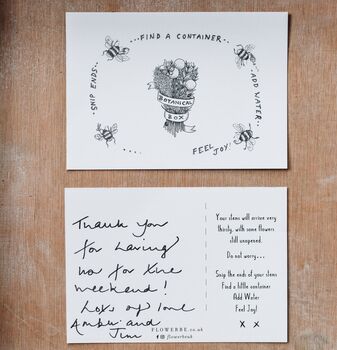 ...FIND A CONTAINER...
SNIP ENDS..
..ADD WATER..
BOTANICAL
BOX
FEEL JOY!
....
Thank you
for having
us for the
weekend!
Lots of love
Amber and
Jim
Your stems will arrive very
thirsty, with some flowers
still unopened.
Do not worry...
Snip the ends of your stems
Find a little container
Add Water
Feel Joy!
X X
FLOWERBE.co.uk
flowerbeuk